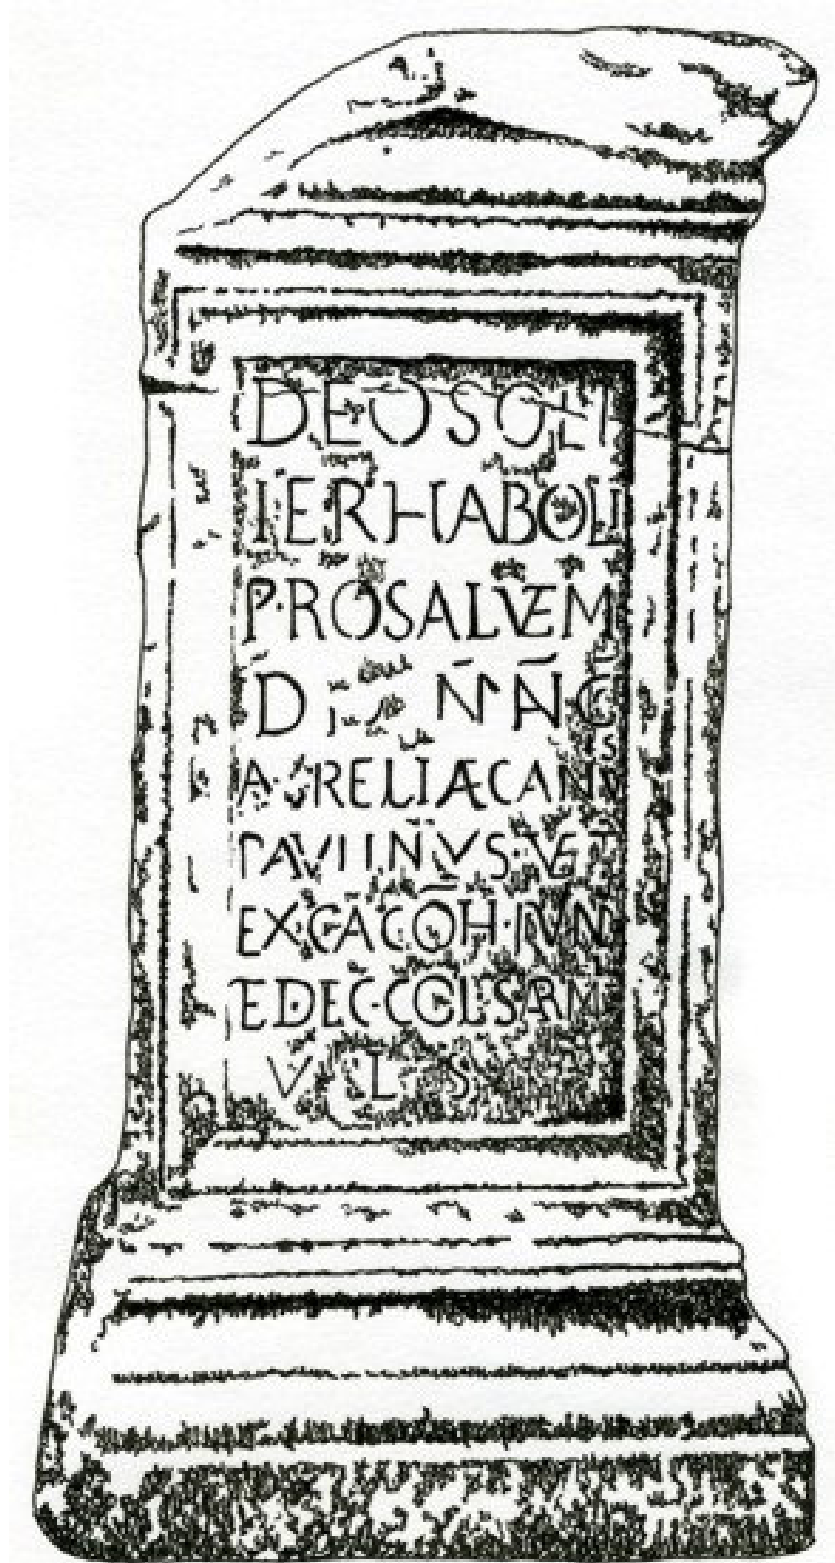 DEO SOLI
IERHABOLI
PRO SALVTEM
D N̄ N̄ C
AVRELIAE CAN
PAVLINVS VET
EX C A COH
E DEC COL SARM
V L S